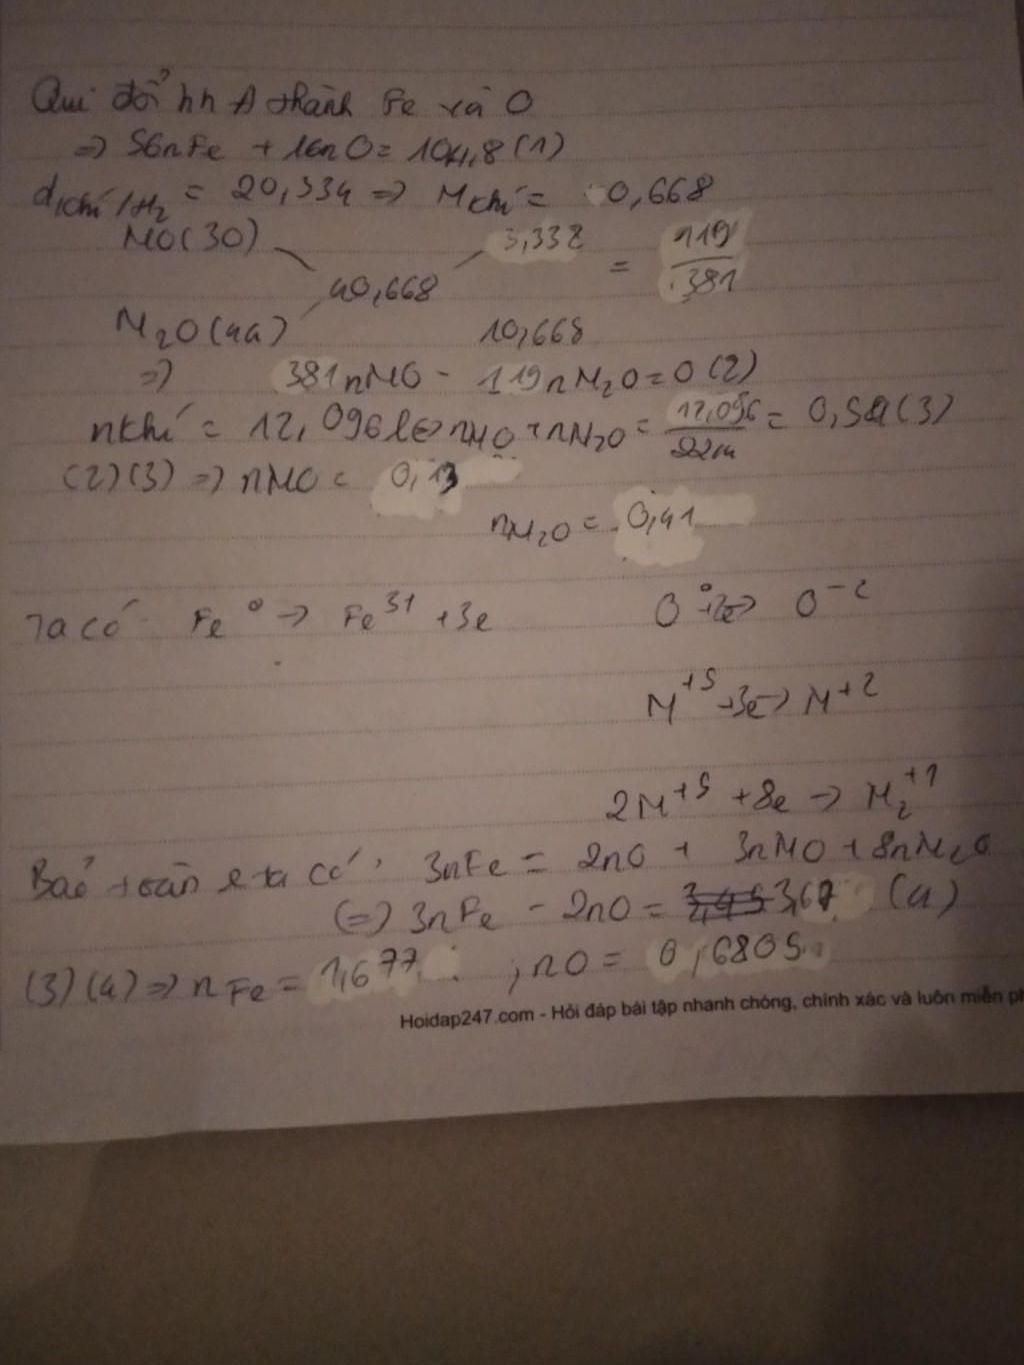 Qui đổi hh A thành Fe và O
=> 56nFe + 16nO = 104,8 (1)
d khí/H₂ = 20,334 => M khí = 0,668
NO(30) 3,332 = 119/381
40,668
N₂O(44) 10,668
=> 381nNO - 119nN₂O = 0 (2)
nkhí = 12,096l <=> nNO + nN₂O = 12,096/22,4 = 0,54 (3)
(2)(3) => nNO = 0,13
nN₂O = 0,41
Ta có Fe⁰ -> Fe³⁺ + 3e O⁰ + 2e -> O⁻²
N⁺⁵ + 3e -> N⁺²
2N⁺⁵ + 8e -> N₂⁺¹
Bảo toàn e ta có: 3nFe = 2nO + 3nNO + 8nN₂O
(=) 3nFe - 2nO = 3,67 (4)
(3)(4) => nFe = 1,677 ; nO = 0,6805
Hoidap247.com - Hỏi đáp bài tập nhanh chóng, chính xác và luôn miễn ph